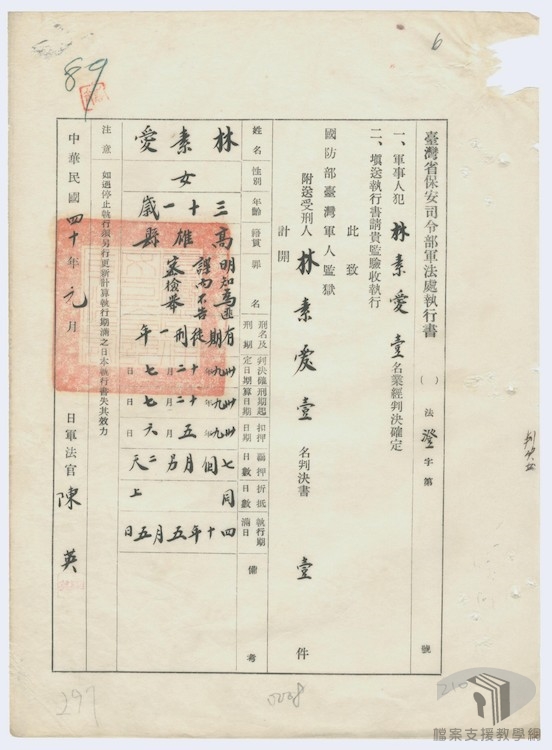 6
89
臺灣省保安司令部軍法處執行書 ( ) 法 澄 字第 號
一、軍事人犯 林素愛 壹 名業經判決確定
二、填送執行書請貴監驗收執行
此致
國防部臺灣軍人監獄
附送受刑人 林素愛 壹 名判決書 壹 件
計開
姓名 性別 年齡 籍貫 罪名 刑名及刑期 判決確定日期 刑期起算日期 扣押日期 羈押日數 折抵日數 執行期滿日 備考
林素愛
女
三十一歲
高雄縣
明知為匪諜而不告密檢舉
有期徒刑一年
卅九年十二月七日
卅九年十二月七日
卅九年五月六日
七個月另二天
同上
四十年五月五日
注意 如遇停止執行須另行更新計算執行期滿之日本執行書失其效力
中華民國 四十 年 元 月 日軍法官 陳英
297
0208
210
檔案支援教學網